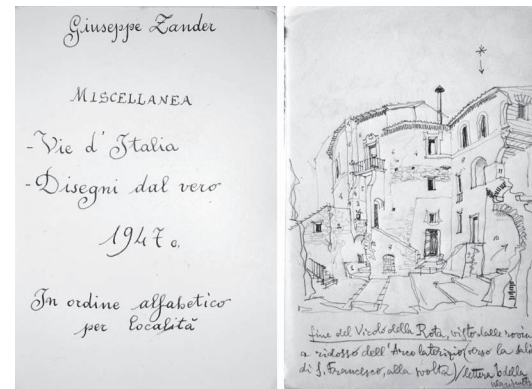 Giuseppe Zander
MISCELLANEA
- Vie d'Italia
- Disegni dal vero
1947 c.
In ordine alfabetico
per località
fine del Vicolo della Rota, visto dalle
a ridosso dell'Arco laterizio (verso la
di S. Francesco, alla svolta) lettera b della